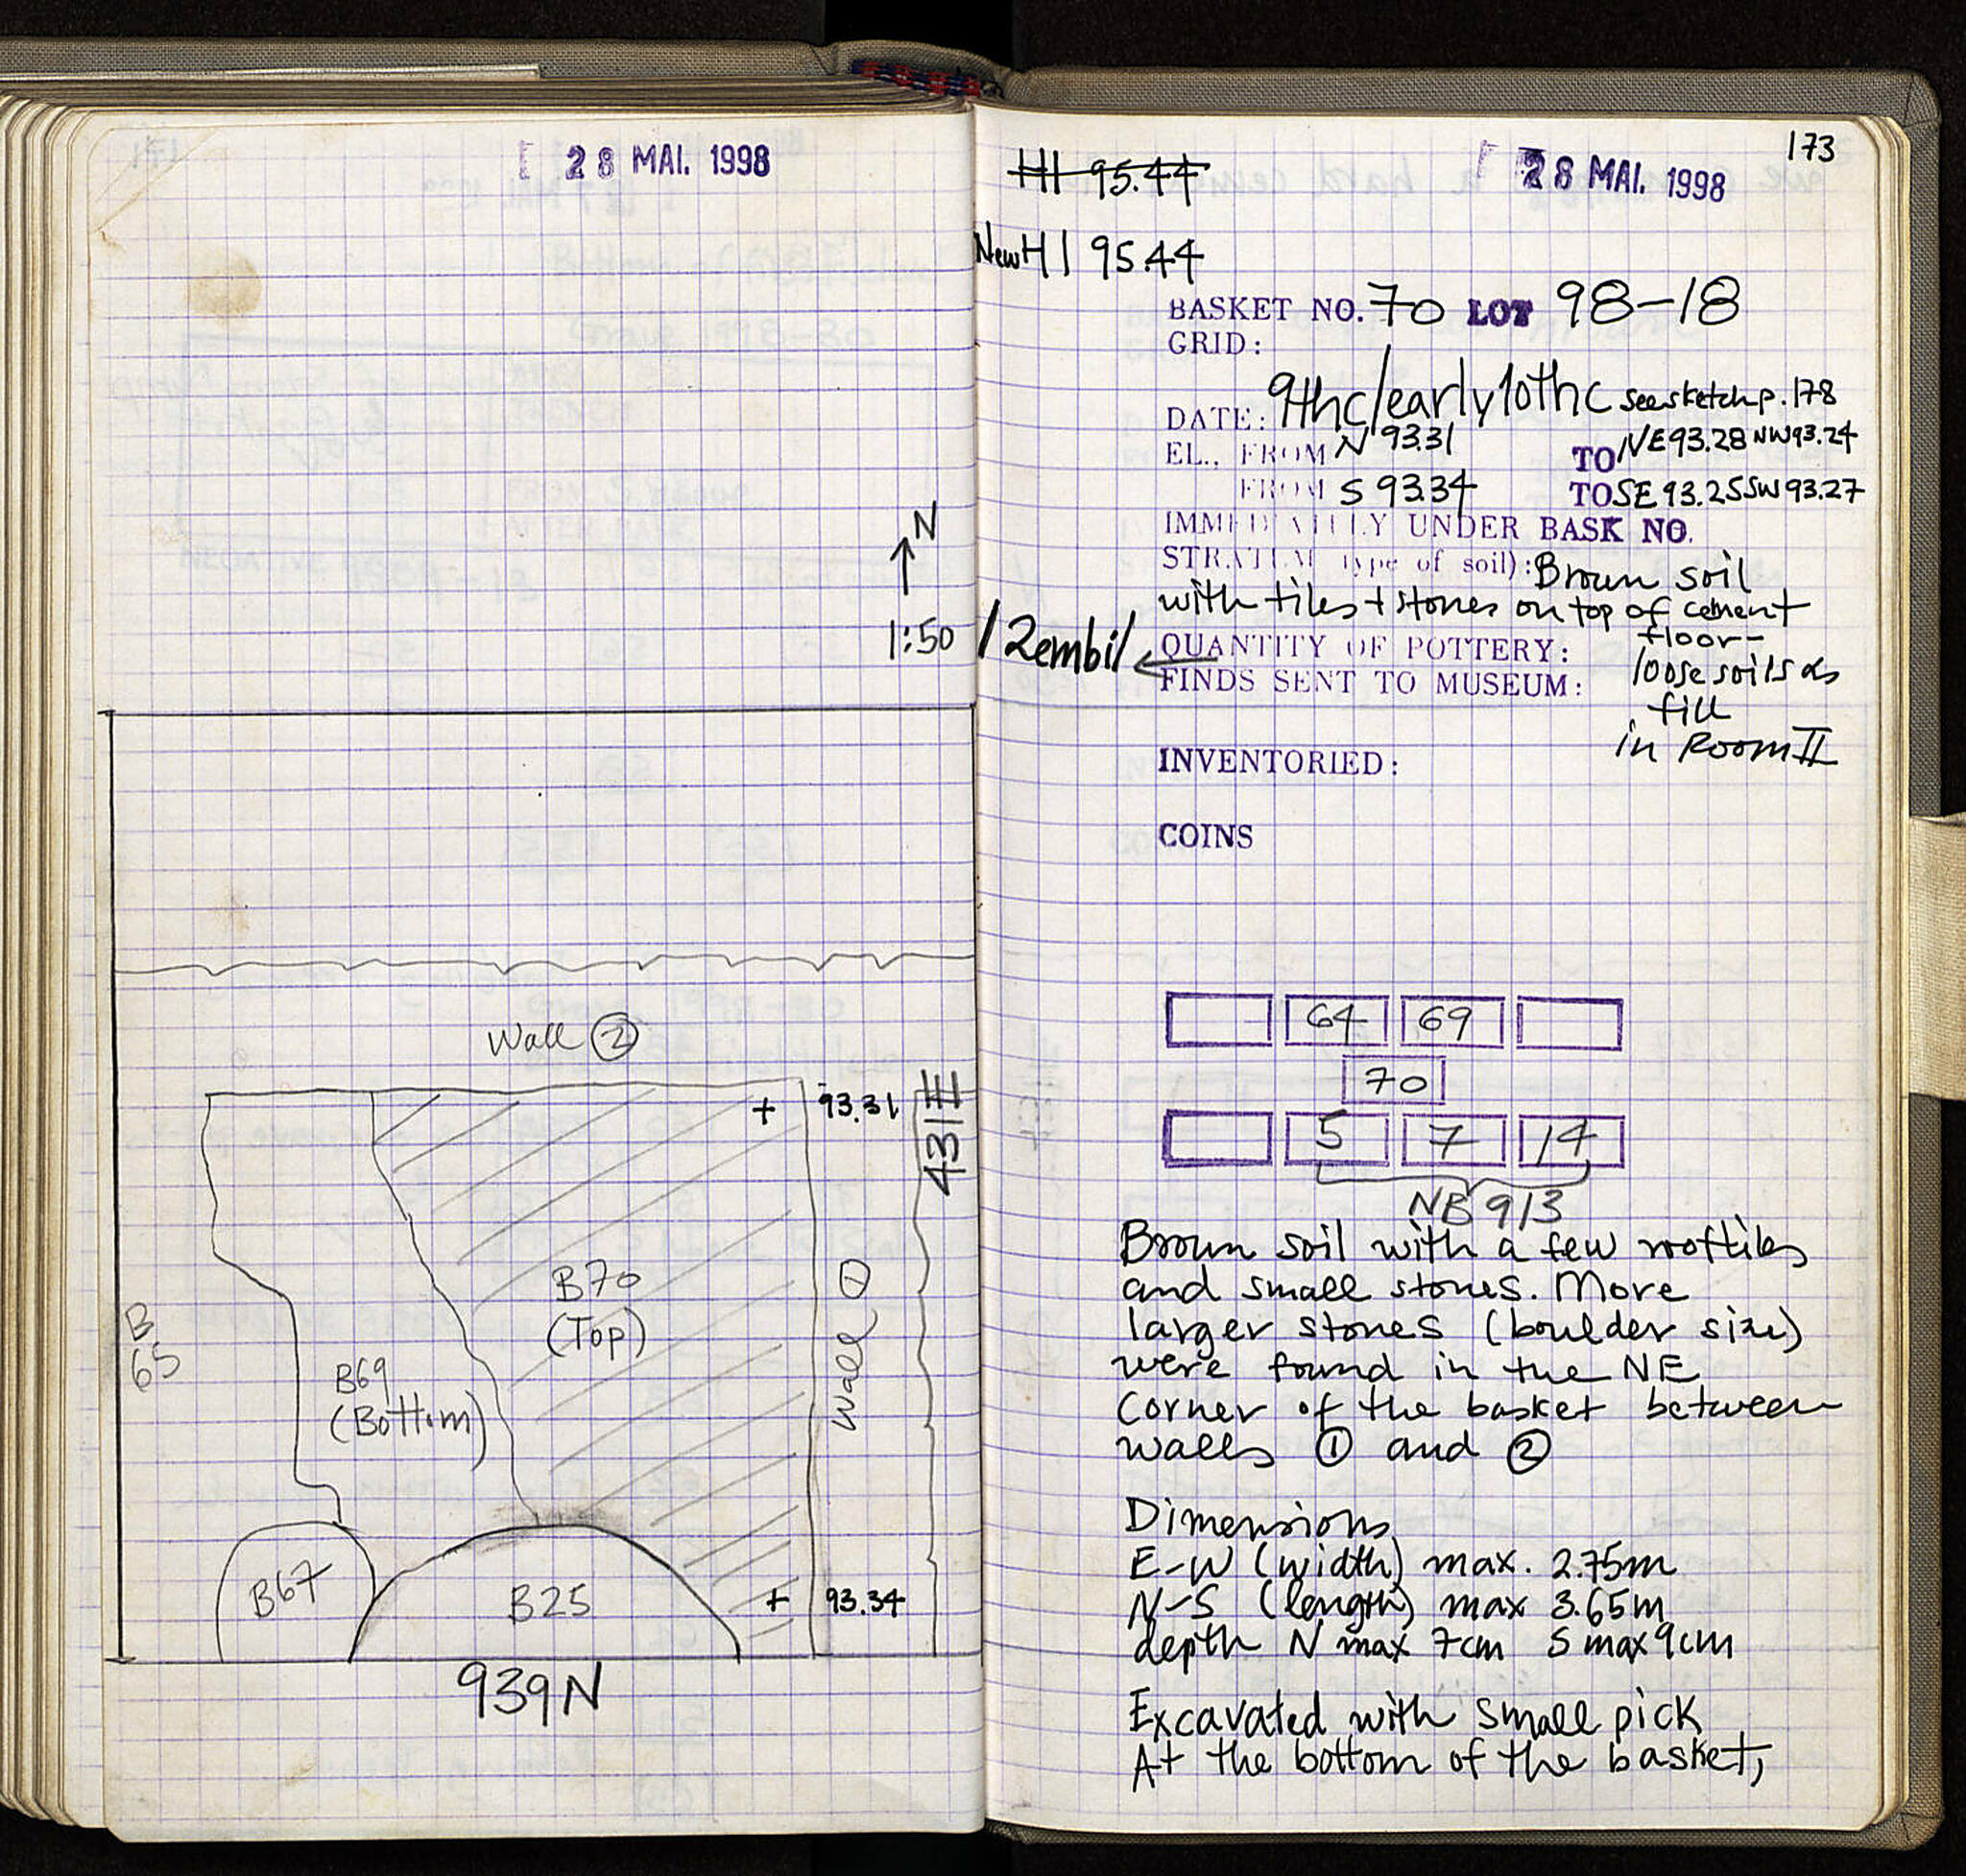 28 MAI. 1998
N
1:50
Wall ②
+ 93.31
431 E
B70
(Top)
Wall ①
B
65
B69
(Bottom)
B67
B25
+ 93.34
939N
173
HI 95.44
28 MAI. 1998
New HI 95.44
BASKET NO. 70 LOT 98-18
GRID:
DATE: 9thc/early 10thc see sketch p. 178
EL., FROM N 93.31 TO NE 93.28 NW 93.24
FROM S 93.34 TO SE 93.25 SW 93.27
IMMEDIATELY UNDER BASK NO.
STRATUM type of soil): Brown soil
with tiles + stones on top of cement
floor-
1 Zembil QUANTITY OF POTTERY:
loose soil as
FINDS SENT TO MUSEUM:
fill
in Room II
INVENTORIED:
COINS
64 69
70
5 7 14
NB 913
Brown soil with a few rooftiles
and small stones. More
larger stones (boulder size)
were found in the NE
corner of the basket between
walls ① and ②
Dimensions
E-W (width) max. 2.75m
N-S (length) max 3.65m
depth N max 7cm S max 9cm
Excavated with small pick
At the bottom of the basket,